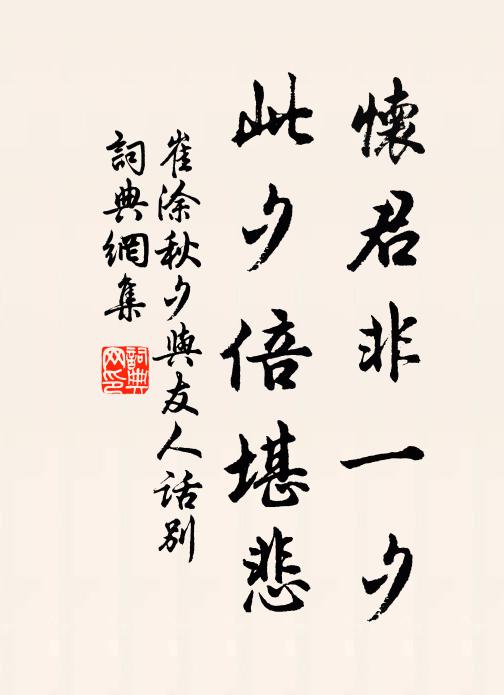 懷君非一夕
此夕倍堪悲
崔涂秋夕與友人话别
詞典網集
詞典网印